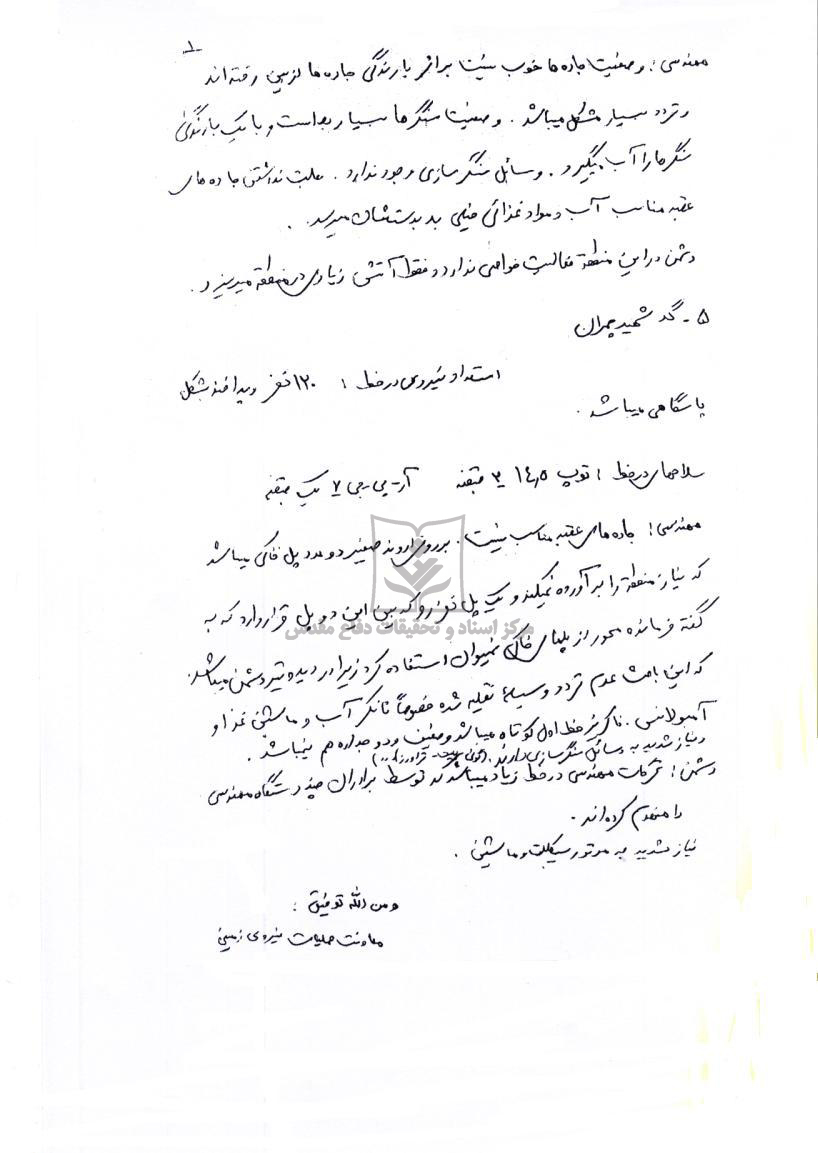 مهندسی: وضعیت جاده ها خوب نیست بر اثر بارندگی جاده ها از بین رفته اند
و تردد بسیار مشکل میباشد. وضعیت سنگرها بسیار بد است و با یک بارندگی
سنگرها را آب میگیرد. وسائل سنگرسازی وجود ندارد. بعلت نداشتن جاده های
عقبه مناسب آب و مواد غذائی خیلی بد بدستشان میرسد.
دشمن در این منطقه فعالیت خواصی ندارد و فقط آتش زیادی در منطقه میریزد.
۵- گد شهید چمران
استعداد نیروی در خط: ۱۲۰ نفر و پدافند بشکل
پاسگاهی میباشد.
سلاحهای در خط: توپ ۱۴٫۵ ۳ قبضه آر-پی-جی ۷ یک قبضه
مهندسی: جاده های عقبه مناسب نیست. بر روی اروند صغیر دو عدد پل خاکی میباشد
که نیاز منطقه را برآورده نمیکند و یک پل نفر رو که بین این دو پل قرار دارد که به
مرکز اسناد و تحقیقات دفاع مقدس
گفته فرمانده محور از پلهای خاکی نمیتوان استفاده کرد زیرا در دید و تیر دشمن میباشد.
که این باعث عدم تردد وسیله نقلیه شده خصوصاً تانکر آب و ماشین غذا و
آمبولانس. خاکریز خط اول کوتاه میباشد و ضعیف و دو جداره هم نمیباشد.
و نیاز شدید به وسائل سنگرسازی دارند.
دشمن: تحرکات مهندسی در خط زیاد میباشد که توسط برادران چند دستگاه مهندسی
را منهدم کرده اند.
نیاز شدید به موتورسیکلت و ماشین.
و من الله توفیق:
معاونت عملیات نیروی زمینی